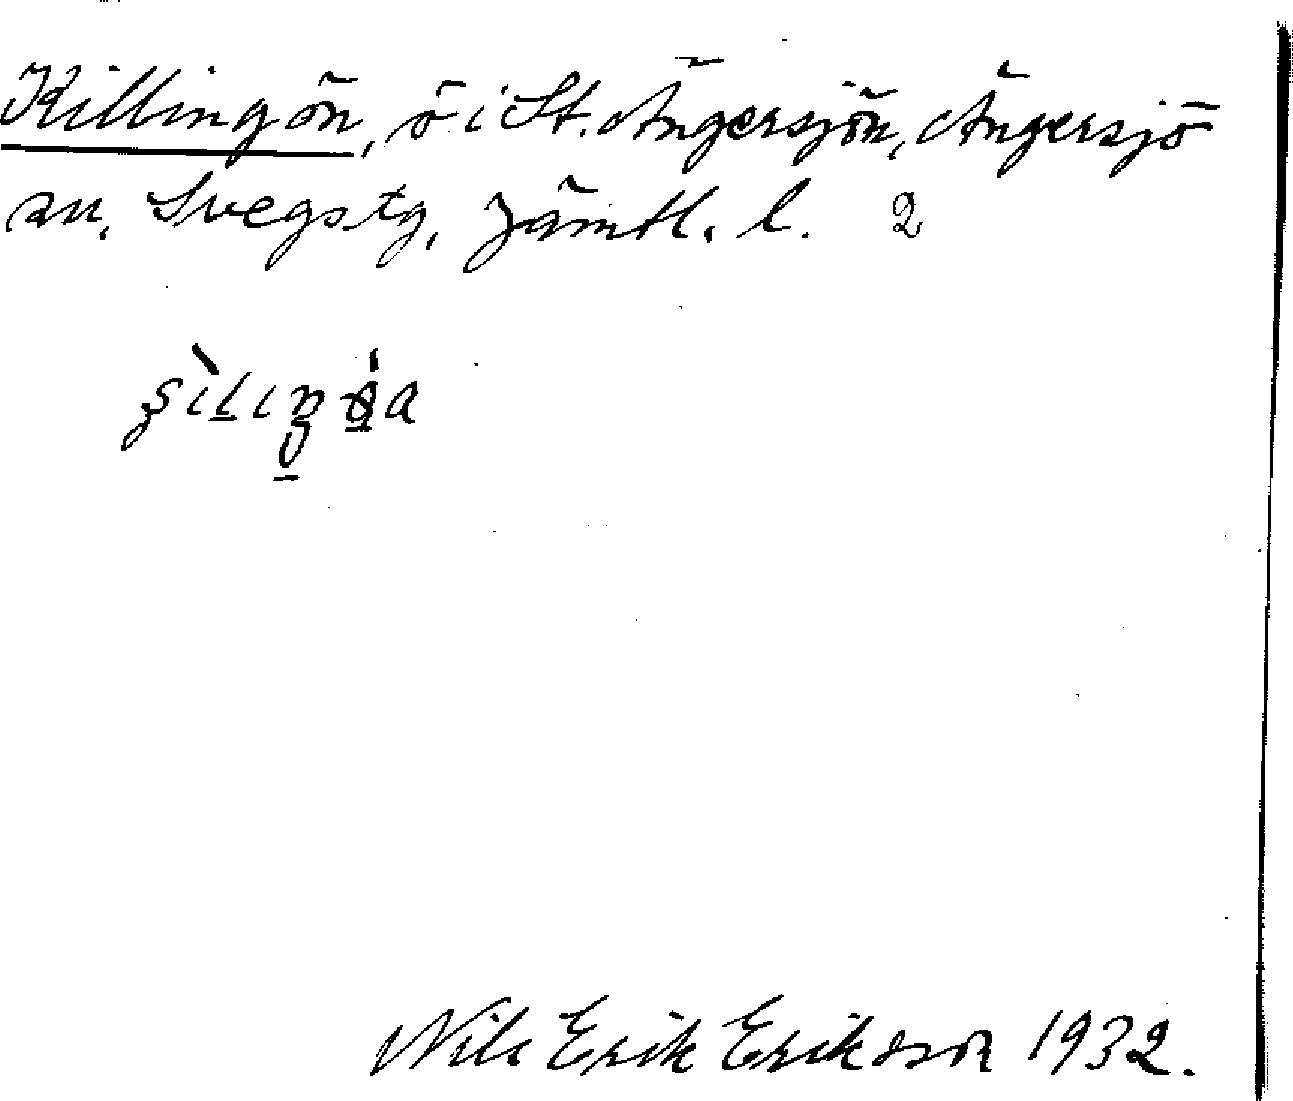 Killingön, ö i St. Ängersjön, Ängersjö
sn, Svegs tg, Jämtl. l. 2
Nils Erik Eriksson 1932.